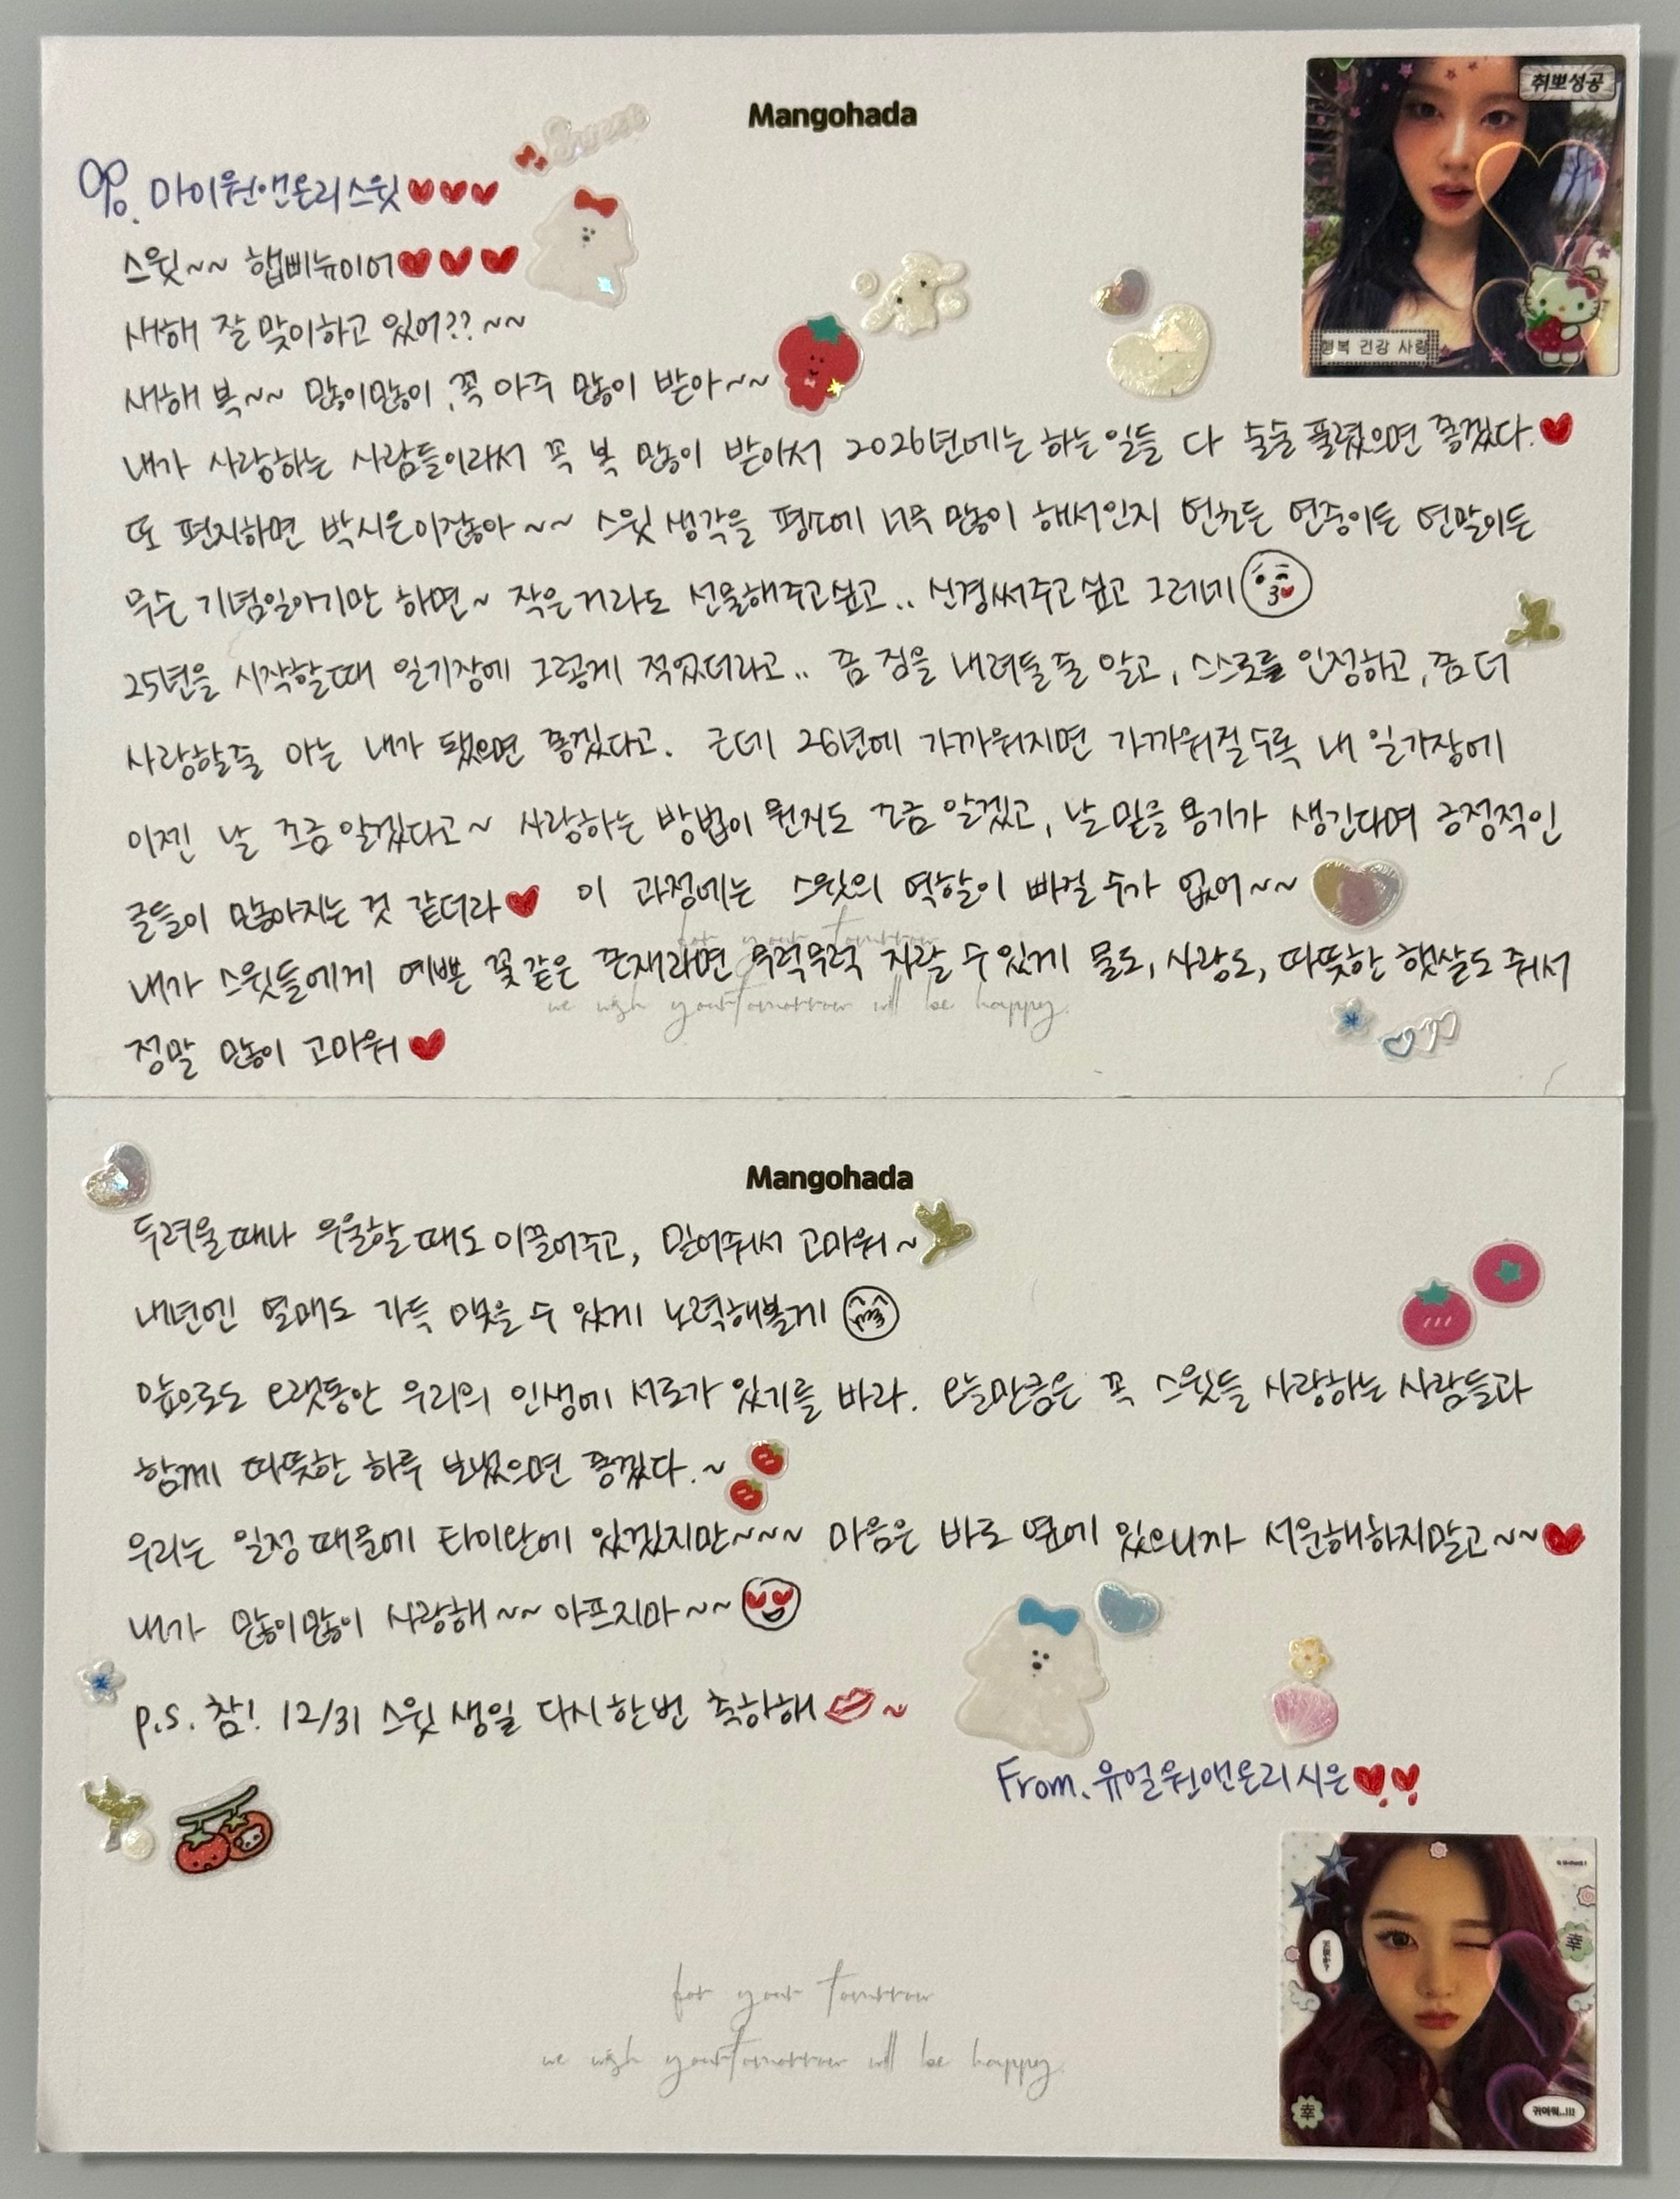 Mangohada
Sweet
취뽀성공
행복 건강 사랑
To. 마이원앤온리스윗♥♥♥
스윗~~ 햅삐뉴이어♥♥♥
새해 잘 맞이하고 있어??~~
새해 복~~ 많이많이, 꼭 아주 많이 받아~~
내가 사랑하는 사람들이라서 꼭 복 많이 받아서 2026년에는 하는일들 다 술술 풀렸으면 좋겠다.♥
또 편지하면 박시은이잖아~~ 스윗 생각을 평소에 너무 많이 해서인지 연초든 연중이든 연말이든
무슨 기념일이기만 하면~ 작은거라도 선물해주고싶고.. 신경써주고싶고 그러네
25년을 시작할때 일기장에 그렇게 적었더라고.. 좀 짐을 내려둘줄 알고, 스스로를 인정하고, 좀 더
사랑할줄 아는 내가 됐으면 좋겠다고. 근데 26년에 가까워지면 가까워질수록 내 일기장에
이젠 날 조금 알겠다고~ 사랑하는 방법이 뭔지도 조금 알겠고, 날 믿을 용기가 생긴다며 긍정적인
글들이 많아지는 것 같더라♥ 이 과정에는 스윗의 역할이 빠질 수가 없어~~
for your tomorrow
내가 스윗들에게 예쁜 꽃같은 존재라면 무럭무럭 자랄 수 있게 물도, 사랑도, 따뜻한 햇살도 줘서
we wish your tomorrow will be happy.
정말 많이 고마워♥
Mangohada
두려울때나 우울할때도 이끌어주고, 믿어줘서 고마워~
내년엔 열매도 가득 맺을 수 있게 노력해볼게
앞으로도 오랫동안 우리의 인생에 서로가 있기를 바라. 오늘만큼은 꼭 스윗들 사랑하는 사람들과
함께 따뜻한 하루 보냈으면 좋겠다.~
우리는 일정 때문에 타이완에 있겠지만~~~ 마음은 바로 옆에 있으니까 서운해하지말고~~♥
내가 많이많이 사랑해~~ 아프지마~~
p.s. 참! 12/31 스윗 생일 다시한번 축하해~
From. 유얼원앤온리시은♥♥
幸
幸
귀여워..!!!
for your tomorrow
we wish your tomorrow will be happy.